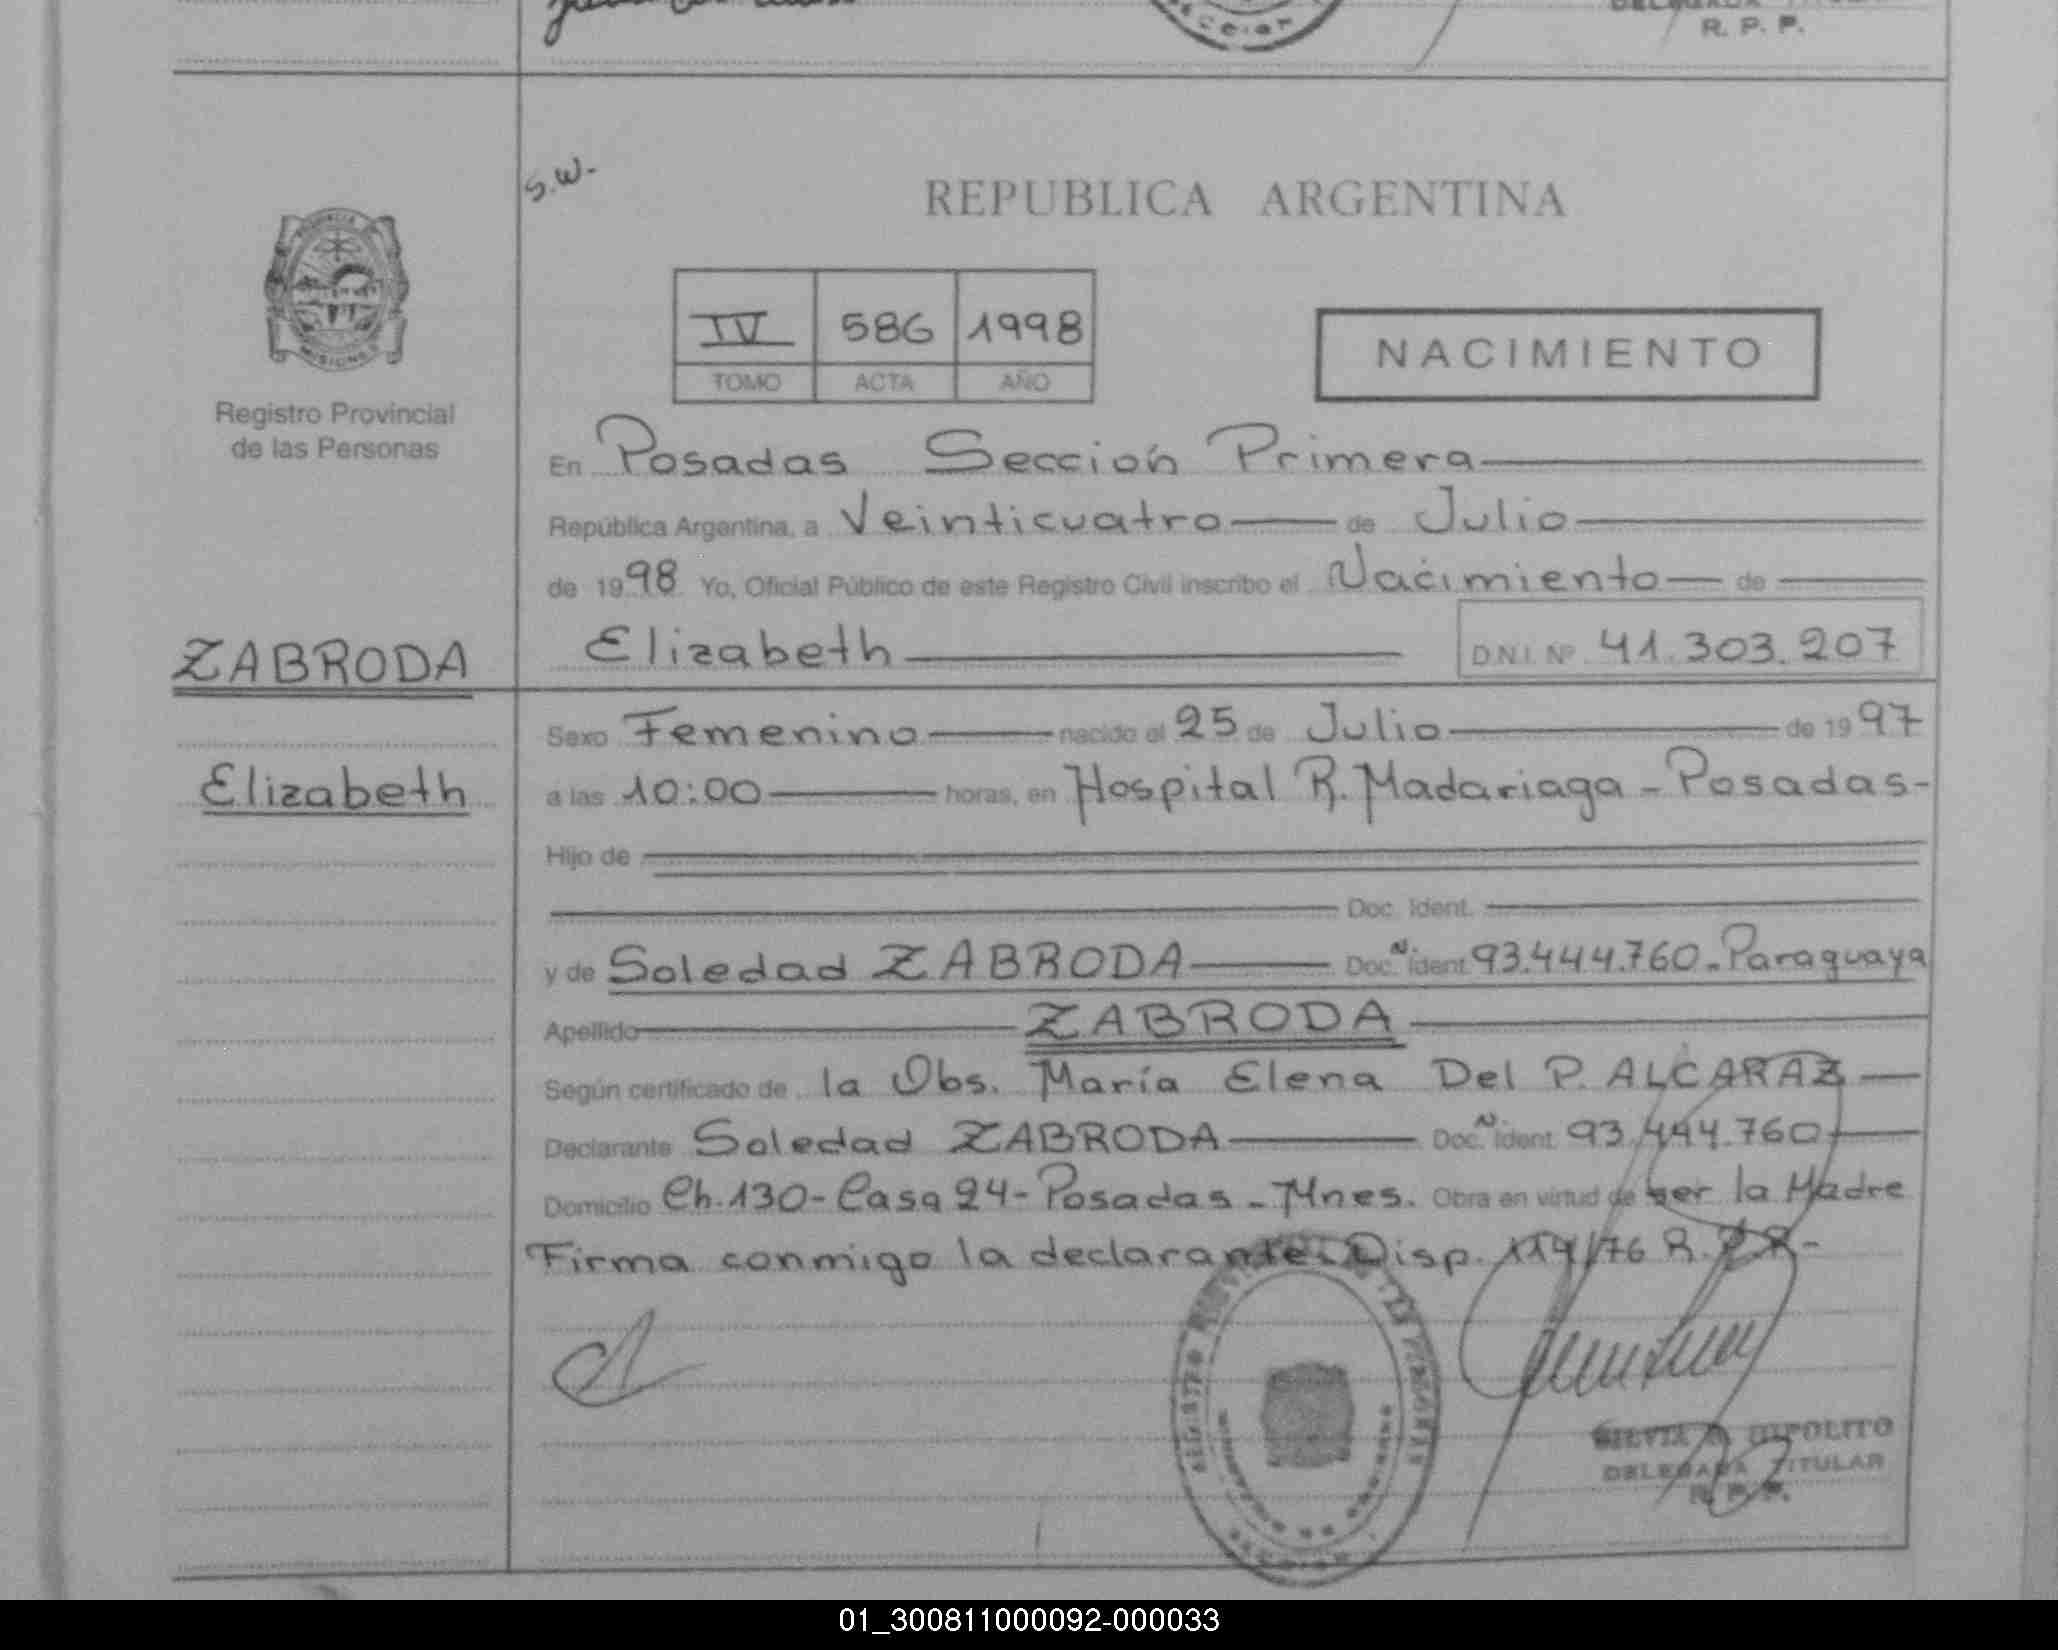 R. P. P.
S.W.-
REPUBLICA ARGENTINA
IV 586 1998
TOMO ACTA AÑO
NACIMIENTO
Registro Provincial
de las Personas
En Posadas Sección Primera
República Argentina, a Veinticuatro de Julio
de 1998 Yo, Oficial Público de este Registro Civil inscribo el Nacimiento de
ZABRODA
Elizabeth D.N.I. Nº 41.303.207
Sexo Femenino nacido el 25 de Julio de 1997
Elizabeth
a las 10:00 horas, en Hospital R. Madariaga - Posadas-
Hijo de
Doc. Ident.
y de Soledad ZABRODA Doc. N Ident 93.444.760-Paraguaya
Apellido ZABRODA
Según certificado de la Obs. María Elena Del P. ALCARAZ
Declarante Soledad ZABRODA Doc. N Ident. 93.444.760
Domicilio Ch.130-Casa 24-Posadas-Mnes. Obra en virtud de ser la Madre
Firma conmigo la declarante. Disp. 114/76 R.P.P.-
SILVIA HIPOLITO
DELEGADA TITULAR
R. P. P.
01_300811000092-000033